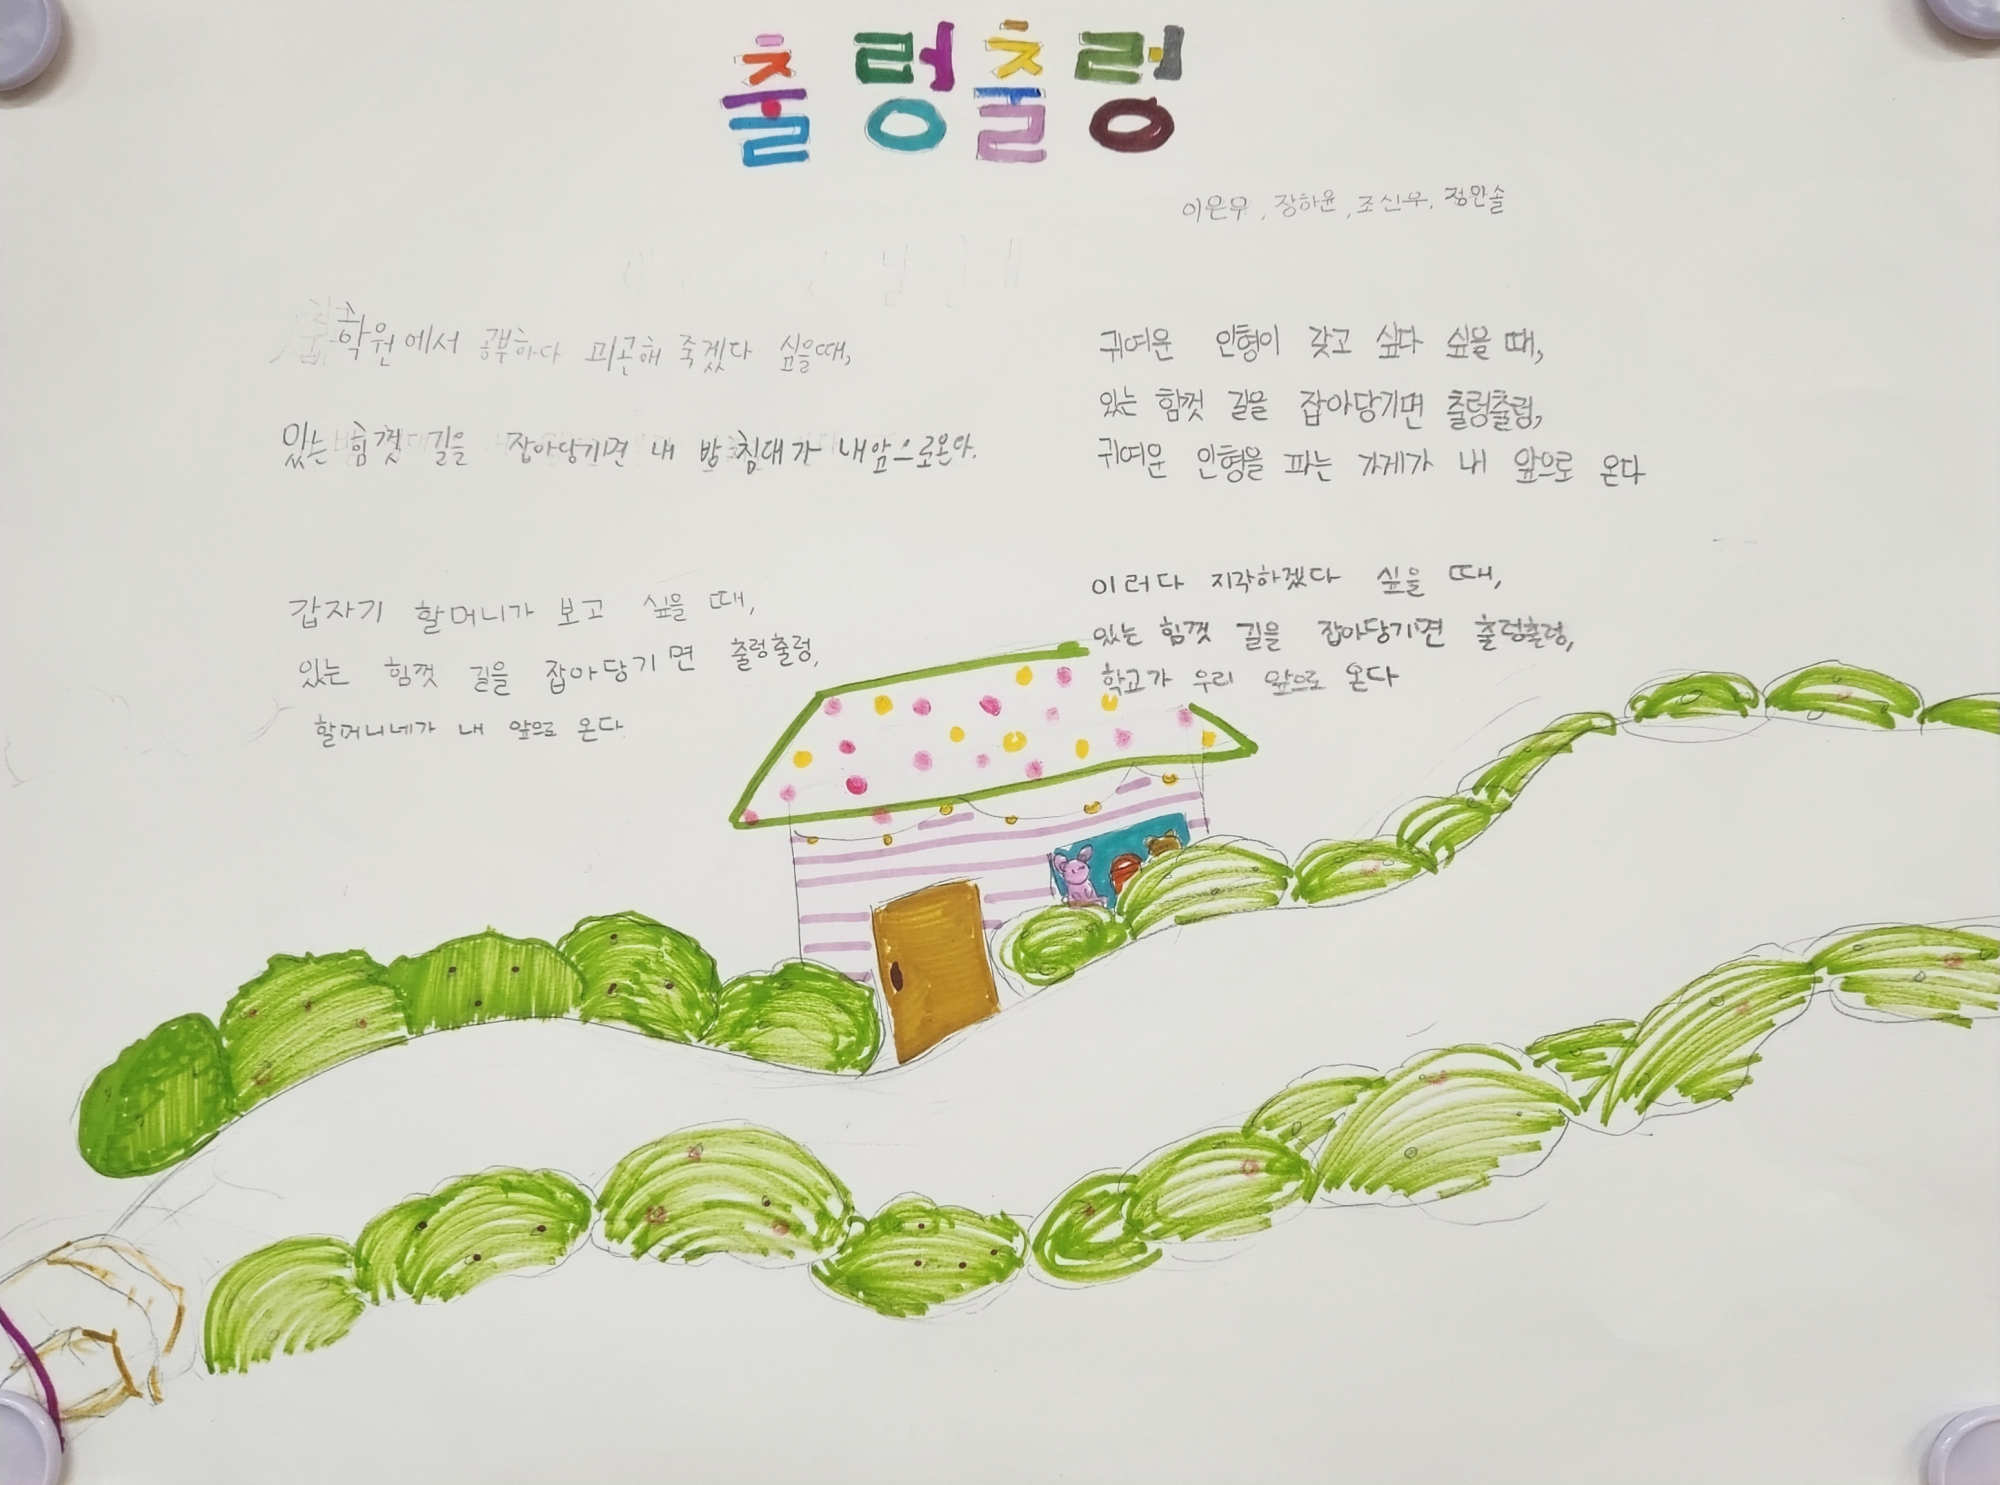 출렁출렁
이은우, 장하윤, 조신우, 정안솔
학원에서 공부하다 피곤해 죽겠다 싶을때,
있는 힘껏 길을 잡아당기면 내 방 침대가 내앞으로온다.
갑자기 할머니가 보고 싶을 때,
있는 힘껏 길을 잡아당기면 출렁출렁,
할머니네가 내 앞으로 온다.
귀여운 인형이 갖고 싶다 싶을 때,
있는 힘껏 길을 잡아당기면 출렁출렁,
귀여운 인형을 파는 가게가 내 앞으로 온다
이러다 지각하겠다 싶을 때,
있는 힘껏 길을 잡아당기면 출렁출렁,
학교가 우리 앞으로 온다